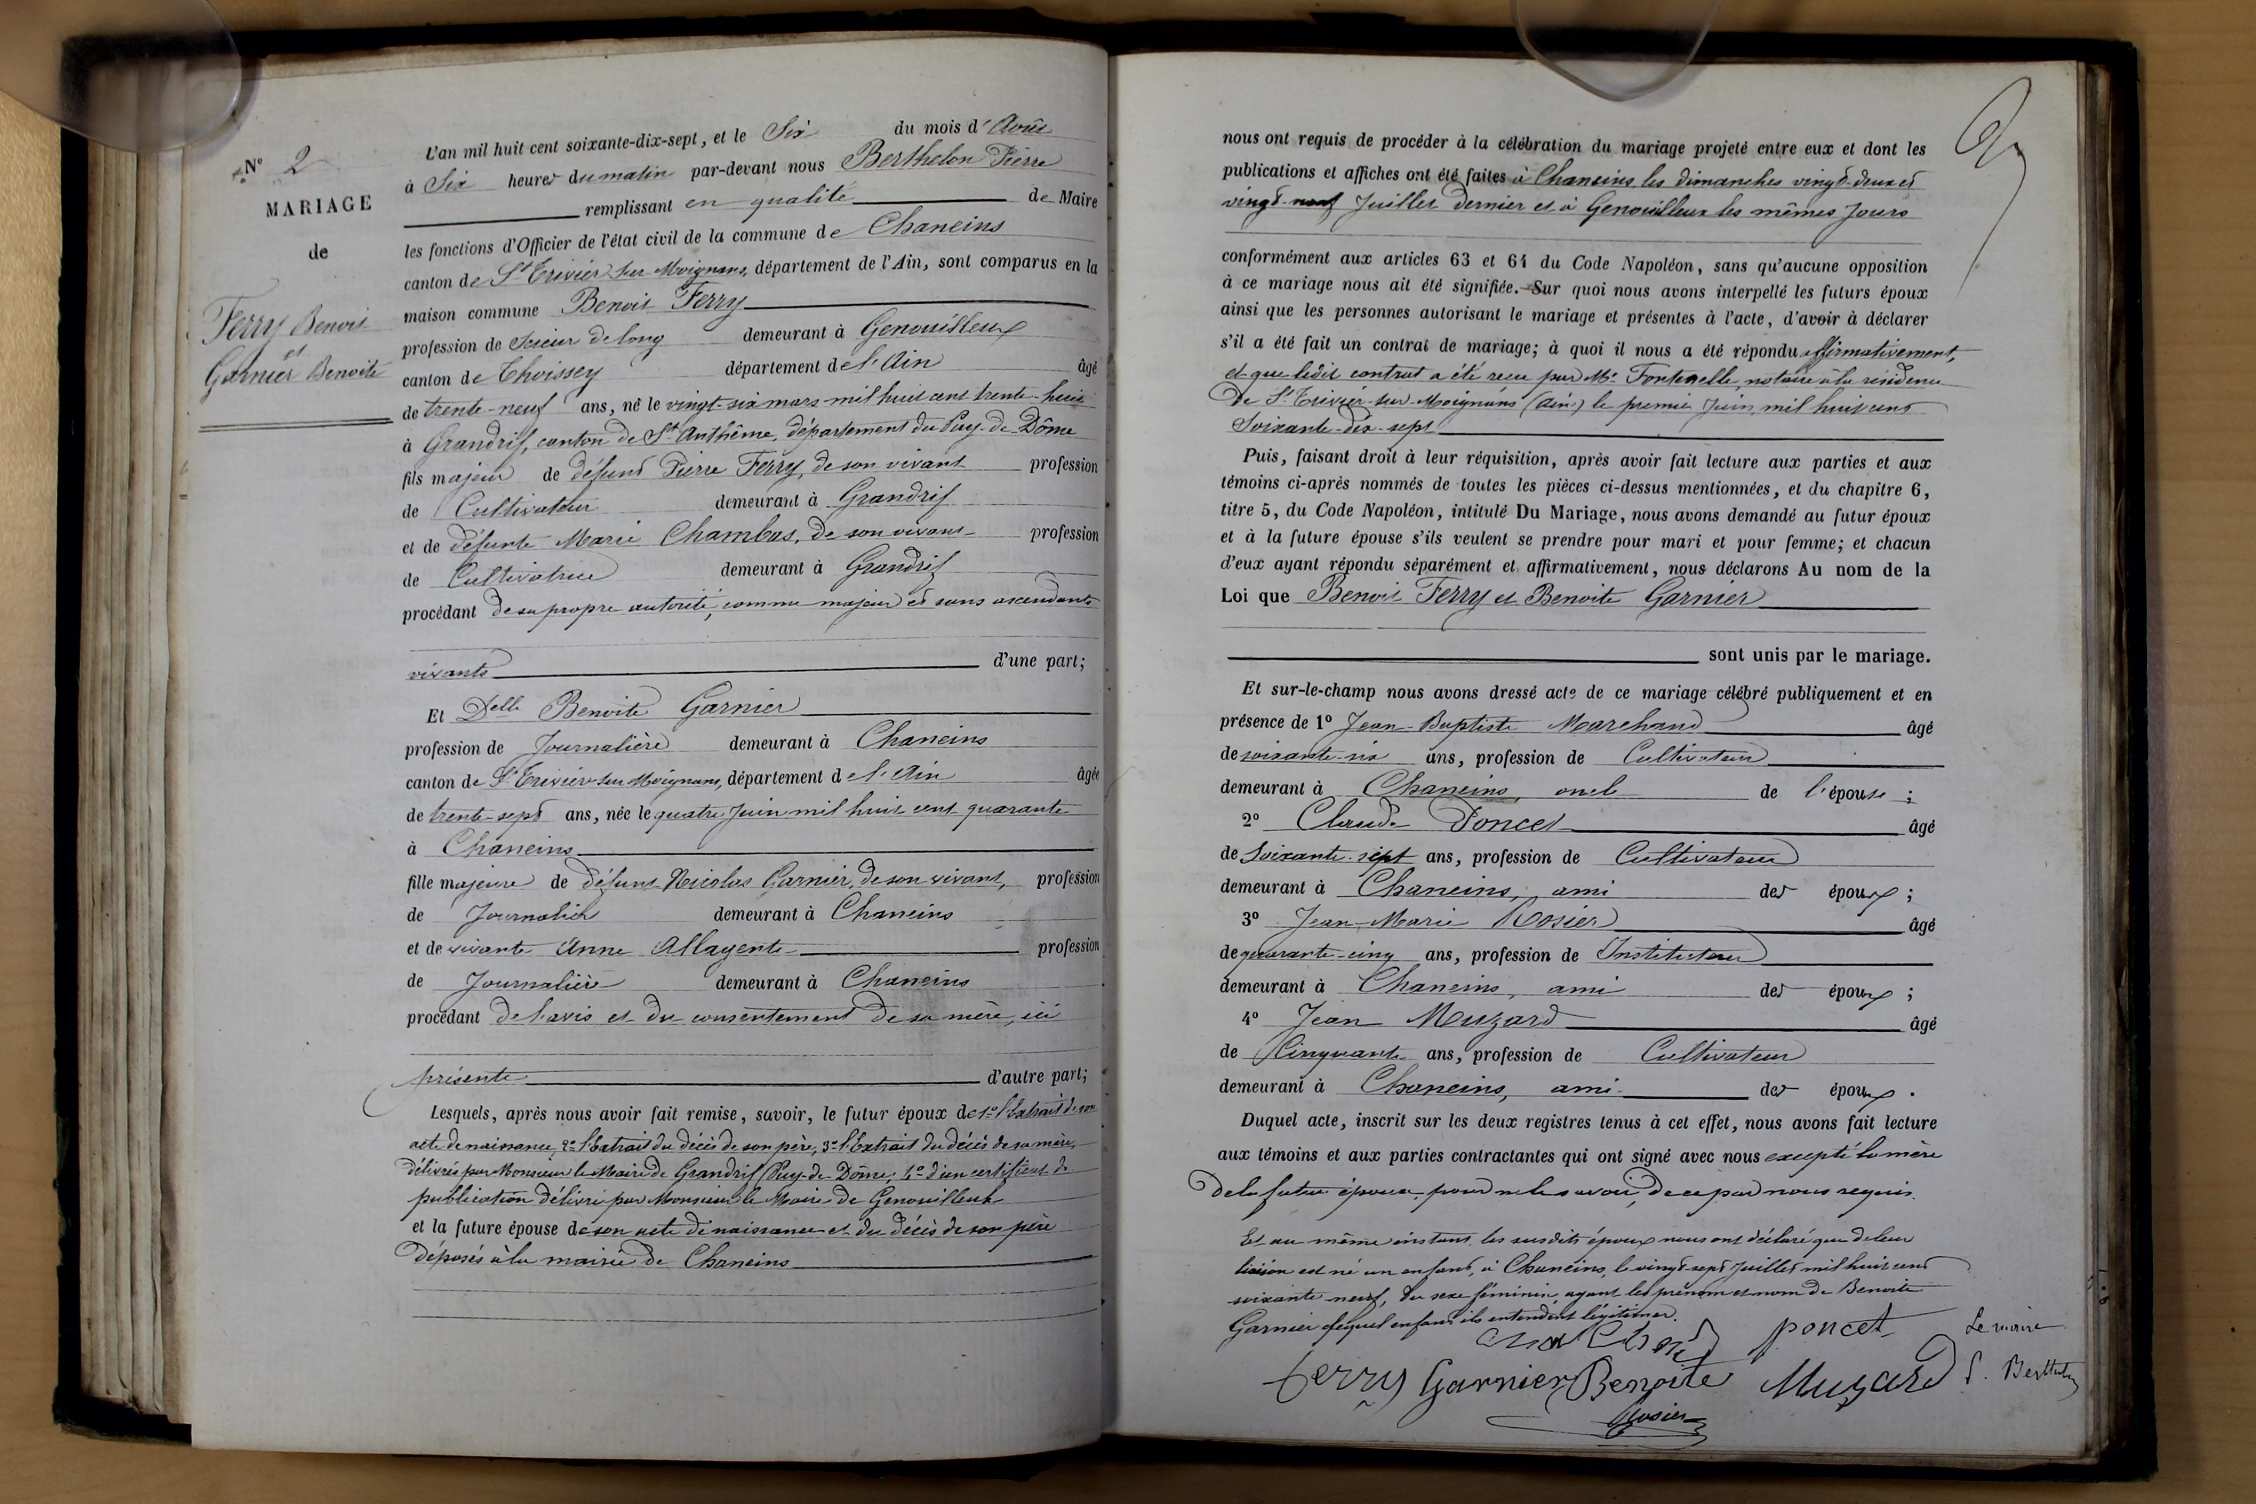 N° 2
MARIAGE
de
Ferry Benoit
et
Garnier Benoite
L'an mil huit cent soixante-dix-sept, et le Six du mois d'Août
à Six heures du matin par-devant nous Berthelon Pierre
remplissant en qualité de Maire
les fonctions d'Officier de l'état civil de la commune de Chaneins
canton de St Trivier sur Moignans, département de l'Ain, sont comparus en la
maison commune Benoit Ferry
profession de Scieur de long demeurant à Genouilleux
canton de Thoissey département de l'Ain âgé
de trente-neuf ans, né le vingt-six mars mil huit cent trente-huit
à Grandrif, canton de St Anthême, département du Puy-de-Dôme
fils majeur de défunt Pierre Ferry, de son vivant profession
de Cultivateur demeurant à Grandrif
et de défunte Marie Chambas, de son vivant profession
de Cultivatrice demeurant à Grandrif
procédant de sa propre autorité, comme majeur et sans ascendants
vivants d'une part;
Et Delle Benoite Garnier
profession de Journalière demeurant à Chaneins
canton de St Trivier sur Moignans, département de l'Ain âgée
de trente-sept ans, née le quatre Juin mil huit cent quarante
à Chaneins
fille majeure de défunt Nicolas Garnier, de son vivant, profession
de Journalier demeurant à Chaneins
et de vivante Anne Allagente profession
de Journalière demeurant à Chaneins
procédant de l'avis et du consentement de sa mère, ici
présente d'autre part;
Lesquels, après nous avoir fait remise, savoir, le futur époux de 1° l'Extrait de son
acte de naissance, 2° l'Extrait du décès de son père, 3° l'Extrait du décès de sa mère,
délivrés par Monsieur le Maire de Grandrif (Puy-de-Dôme; 4° d'un certificat de
publication délivré par Monsieur le Maire de Genouilleux
et la future épouse de son acte de naissance et du décès de son père
déposés à la mairie de Chaneins
nous ont requis de procéder à la célébration du mariage projeté entre eux et dont les
publications et affiches ont été faites à Chaneins les dimanches vingt-deux et
vingt-neuf Juillet dernier et à Genouilleux les mêmes jours
conformément aux articles 63 et 64 du Code Napoléon, sans qu'aucune opposition
à ce mariage nous ait été signifiée. Sur quoi nous avons interpellé les futurs époux
ainsi que les personnes autorisant le mariage et présentes à l'acte, d'avoir à déclarer
s'il a été fait un contrat de mariage; à quoi il nous a été répondu affirmativement,
et que ledit contrat a été recu par Me Fontenelle, notaire à la résidence
de St Trivier-sur-Moignans (Ain) le premier Juin mil huit cent
Soixante-dix-sept
Puis, faisant droit à leur réquisition, après avoir fait lecture aux parties et aux
témoins ci-après nommés de toutes les pièces ci-dessus mentionnées, et du chapitre 6,
titre 5, du Code Napoléon, intitulé Du Mariage, nous avons demandé au futur époux
et à la future épouse s'ils veulent se prendre pour mari et pour femme; et chacun
d'eux ayant répondu séparément et affirmativement, nous déclarons Au nom de la
Loi que Benoit Ferry et Benoite Garnier
sont unis par le mariage.
Et sur-le-champ nous avons dressé acte de ce mariage célébré publiquement et en
présence de 1° Jean-Baptiste Marchand âgé
de soixante-six ans, profession de Cultivateur
demeurant à Chaneins, oncle de l'épouse;
2° Claude Poncet âgé
de Soixante-sept ans, profession de Cultivateur
demeurant à Chaneins, ami des époux;
3° Jean-Marie Rosier âgé
de quarante-cinq ans, profession de Instituteur
demeurant à Chaneins, ami des époux;
4° Jean Muzard âgé
de Cinquante ans, profession de Cultivateur
demeurant à Chaneins, ami des époux.
Duquel acte, inscrit sur les deux registres tenus à cet effet, nous avons fait lecture
aux témoins et aux parties contractantes qui ont signé avec nous excepté la mère
de la future épouse, pour ne le savoir, de ce par nous requis.
Et au même instant, les susdits époux nous ont déclaré que de leur
liaison est né un enfant, à Chaneins, le vingt-sept Juillet mil huit cent
soixante neuf, du sexe féminin, ayant les prénom et nom de Benoite
Garnier lequel enfant ils entendent légitimer.
Marchand Poncet Le maire
Ferry Garnier Benoite Muzard P. Berthelon
Rosier